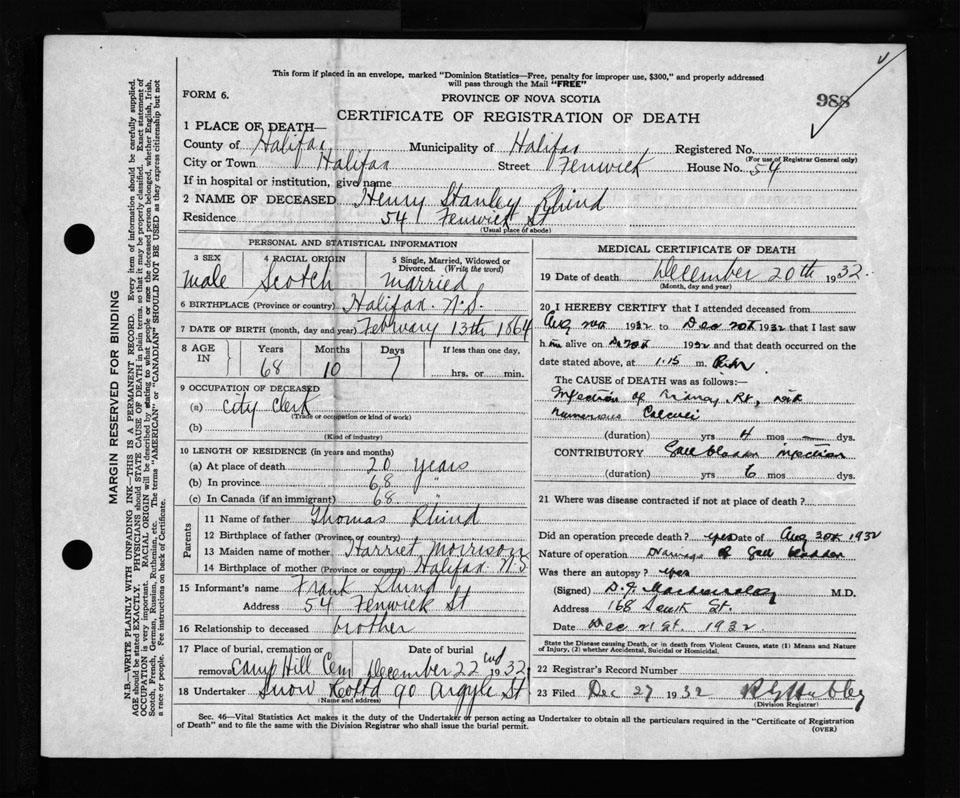 This form if placed in an envelope, marked "Dominion Statistics—Free, penalty for improper use, $300," and properly addressed
will pass through the Mail "FREE"
FORM 6.
PROVINCE OF NOVA SCOTIA
988
CERTIFICATE OF REGISTRATION OF DEATH
1 PLACE OF DEATH—
County of Halifax Municipality of Halifax Registered No.
(For use of Registrar General only)
City or Town Halifax Street Fenwick House No. 54
If in hospital or institution, give name
2 NAME OF DECEASED Henry Stanley Rhind
Residence 54 Fenwick St
(Usual place of abode)
PERSONAL AND STATISTICAL INFORMATION
3 SEX 4 RACIAL ORIGIN 5 Single, Married, Widowed or
Divorced. (Write the word)
Male Scotch Married
6 BIRTHPLACE (Province or country) Halifax N.S.
7 DATE OF BIRTH (month, day and year) February 13th 1864
8 AGE IN Years Months Days If less than one day,
68 10 7 hrs. or min.
9 OCCUPATION OF DECEASED
(a) City Clerk
(Trade or occupation or kind of work)
(b)
(Kind of industry)
10 LENGTH OF RESIDENCE (in years and months)
(a) At place of death 20 years
(b) In province 68 "
(c) In Canada (if an immigrant) 68 "
Parents
11 Name of father Thomas Rhind
12 Birthplace of father (Province or country)
13 Maiden name of mother Harriet Morrison
14 Birthplace of mother (Province or country) Halifax N.S
15 Informant's name Frank Rhind
Address 54 Fenwick St
16 Relationship to deceased brother
17 Place of burial, cremation or Date of burial
removal Camp Hill Cem December 22nd 1932
18 Undertaker Snow & Co Ltd 90 Argyle St
(Name and address)
MEDICAL CERTIFICATE OF DEATH
19 Date of death December 20th 1932.
(Month, day and year)
20 I HEREBY CERTIFY that I attended deceased from
Aug 1932 to Dec 20th 1932 that I last saw
him alive on Dec 20th 1932 and that death occurred on
date stated above, at 1.15 m.
The CAUSE OF DEATH was as follows:—
Infection of Kidney, Rt, with
numerous Calculi
(duration) yrs 4 mos — dys.
CONTRIBUTORY Gall bladder infection
(duration) yrs 6 mos dys.
21 Where was disease contracted if not at place of death?
Did an operation precede death? yes Date of Aug 30th 1932
Nature of operation Drainage of Gall bladder
Was there an autopsy? yes
(Signed) M.D.
Address 168 South St.
Date Dec 21st 1932
State the Disease causing Death, or in death from Violent Causes, state (1) Means and Nature
of Injury, (2) whether Accidental, Suicidal or Homicidal.
22 Registrar's Record Number
23 Filed Dec 27 1932
(Division Registrar)
Sec. 46—Vital Statistics Act makes it the duty of the Undertaker or person acting as Undertaker to obtain all the particulars required in the "Certificate of Registration
of Death" and to file the same with the Division Registrar who shall issue the burial permit.
(OVER)
MARGIN RESERVED FOR BINDING
N.B.—WRITE PLAINLY WITH UNFADING INK—THIS IS A PERMANENT RECORD. Every item of information should be carefully supplied.
AGE should be stated EXACTLY. PHYSICIANS should STATE CAUSE OF DEATH in plain terms, so that it may be properly classified. Exact statement of
OCCUPATION is very important. RACIAL ORIGIN will be described by stating to what people or race the deceased person belonged, whether English, Irish,
Scotch, French, German, Russian, Ruthenian, etc. The terms "AMERICAN" or "CANADIAN" SHOULD NOT BE USED as they express citizenship but not
a race or people. Fee instructions on back of Certificate.